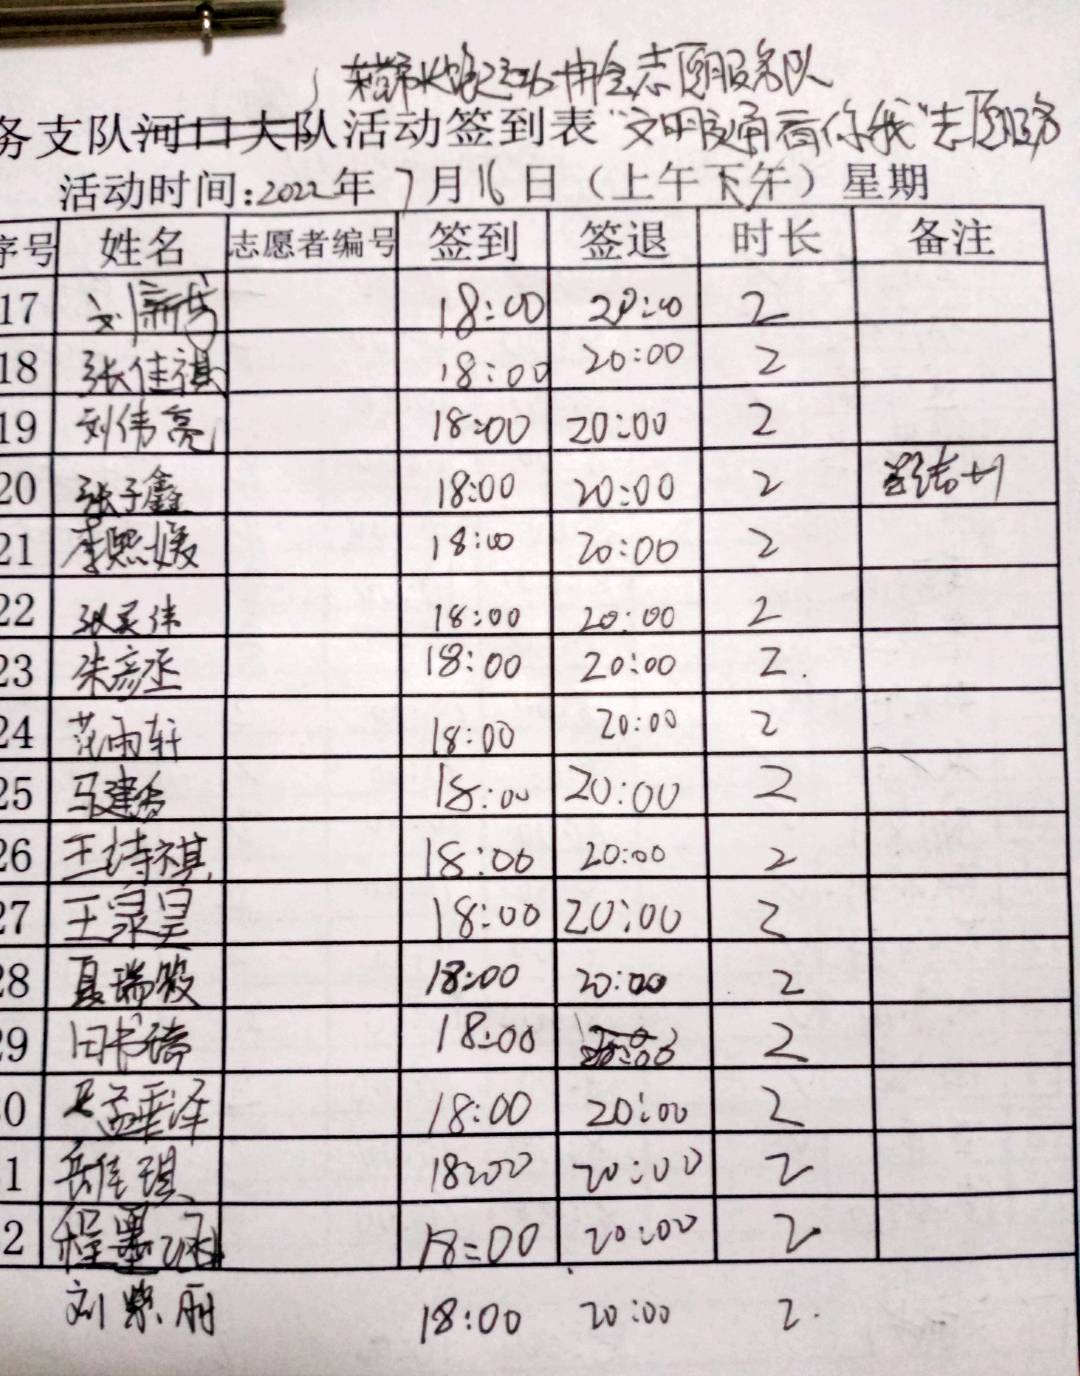 志愿服务队
务支队河口大队活动签到表"文明交通看你我"志愿服务
活动时间:2022年7月16日（上午下午）星期
序号 姓名 志愿者编号 签到 签退 时长 备注
17 刘新 18:00 20:00 2
18 张佳祺 18:00 20:00 2
19 刘伟亮 18:00 20:00 2
20 张子鑫 18:00 20:00 2
21 李熙媛 18:00 20:00 2
22 张昊伟 18:00 20:00 2
23 朱彦丞 18:00 20:00 2.
24 范雨轩 18:00 20:00 2
25 马建 18:00 20:00 2
26 王诗祺 18:00 20:00 2
27 王泉昊 18:00 20:00 2
28 夏瑞毅 18:00 20:00 2
29 18:00 20:00 2
0 18:00 20:00 2
1 岳佳琪 18:00 20:00 2
2 程墨涵 18:00 20:00 2
刘紫 18:00 20:00 2.